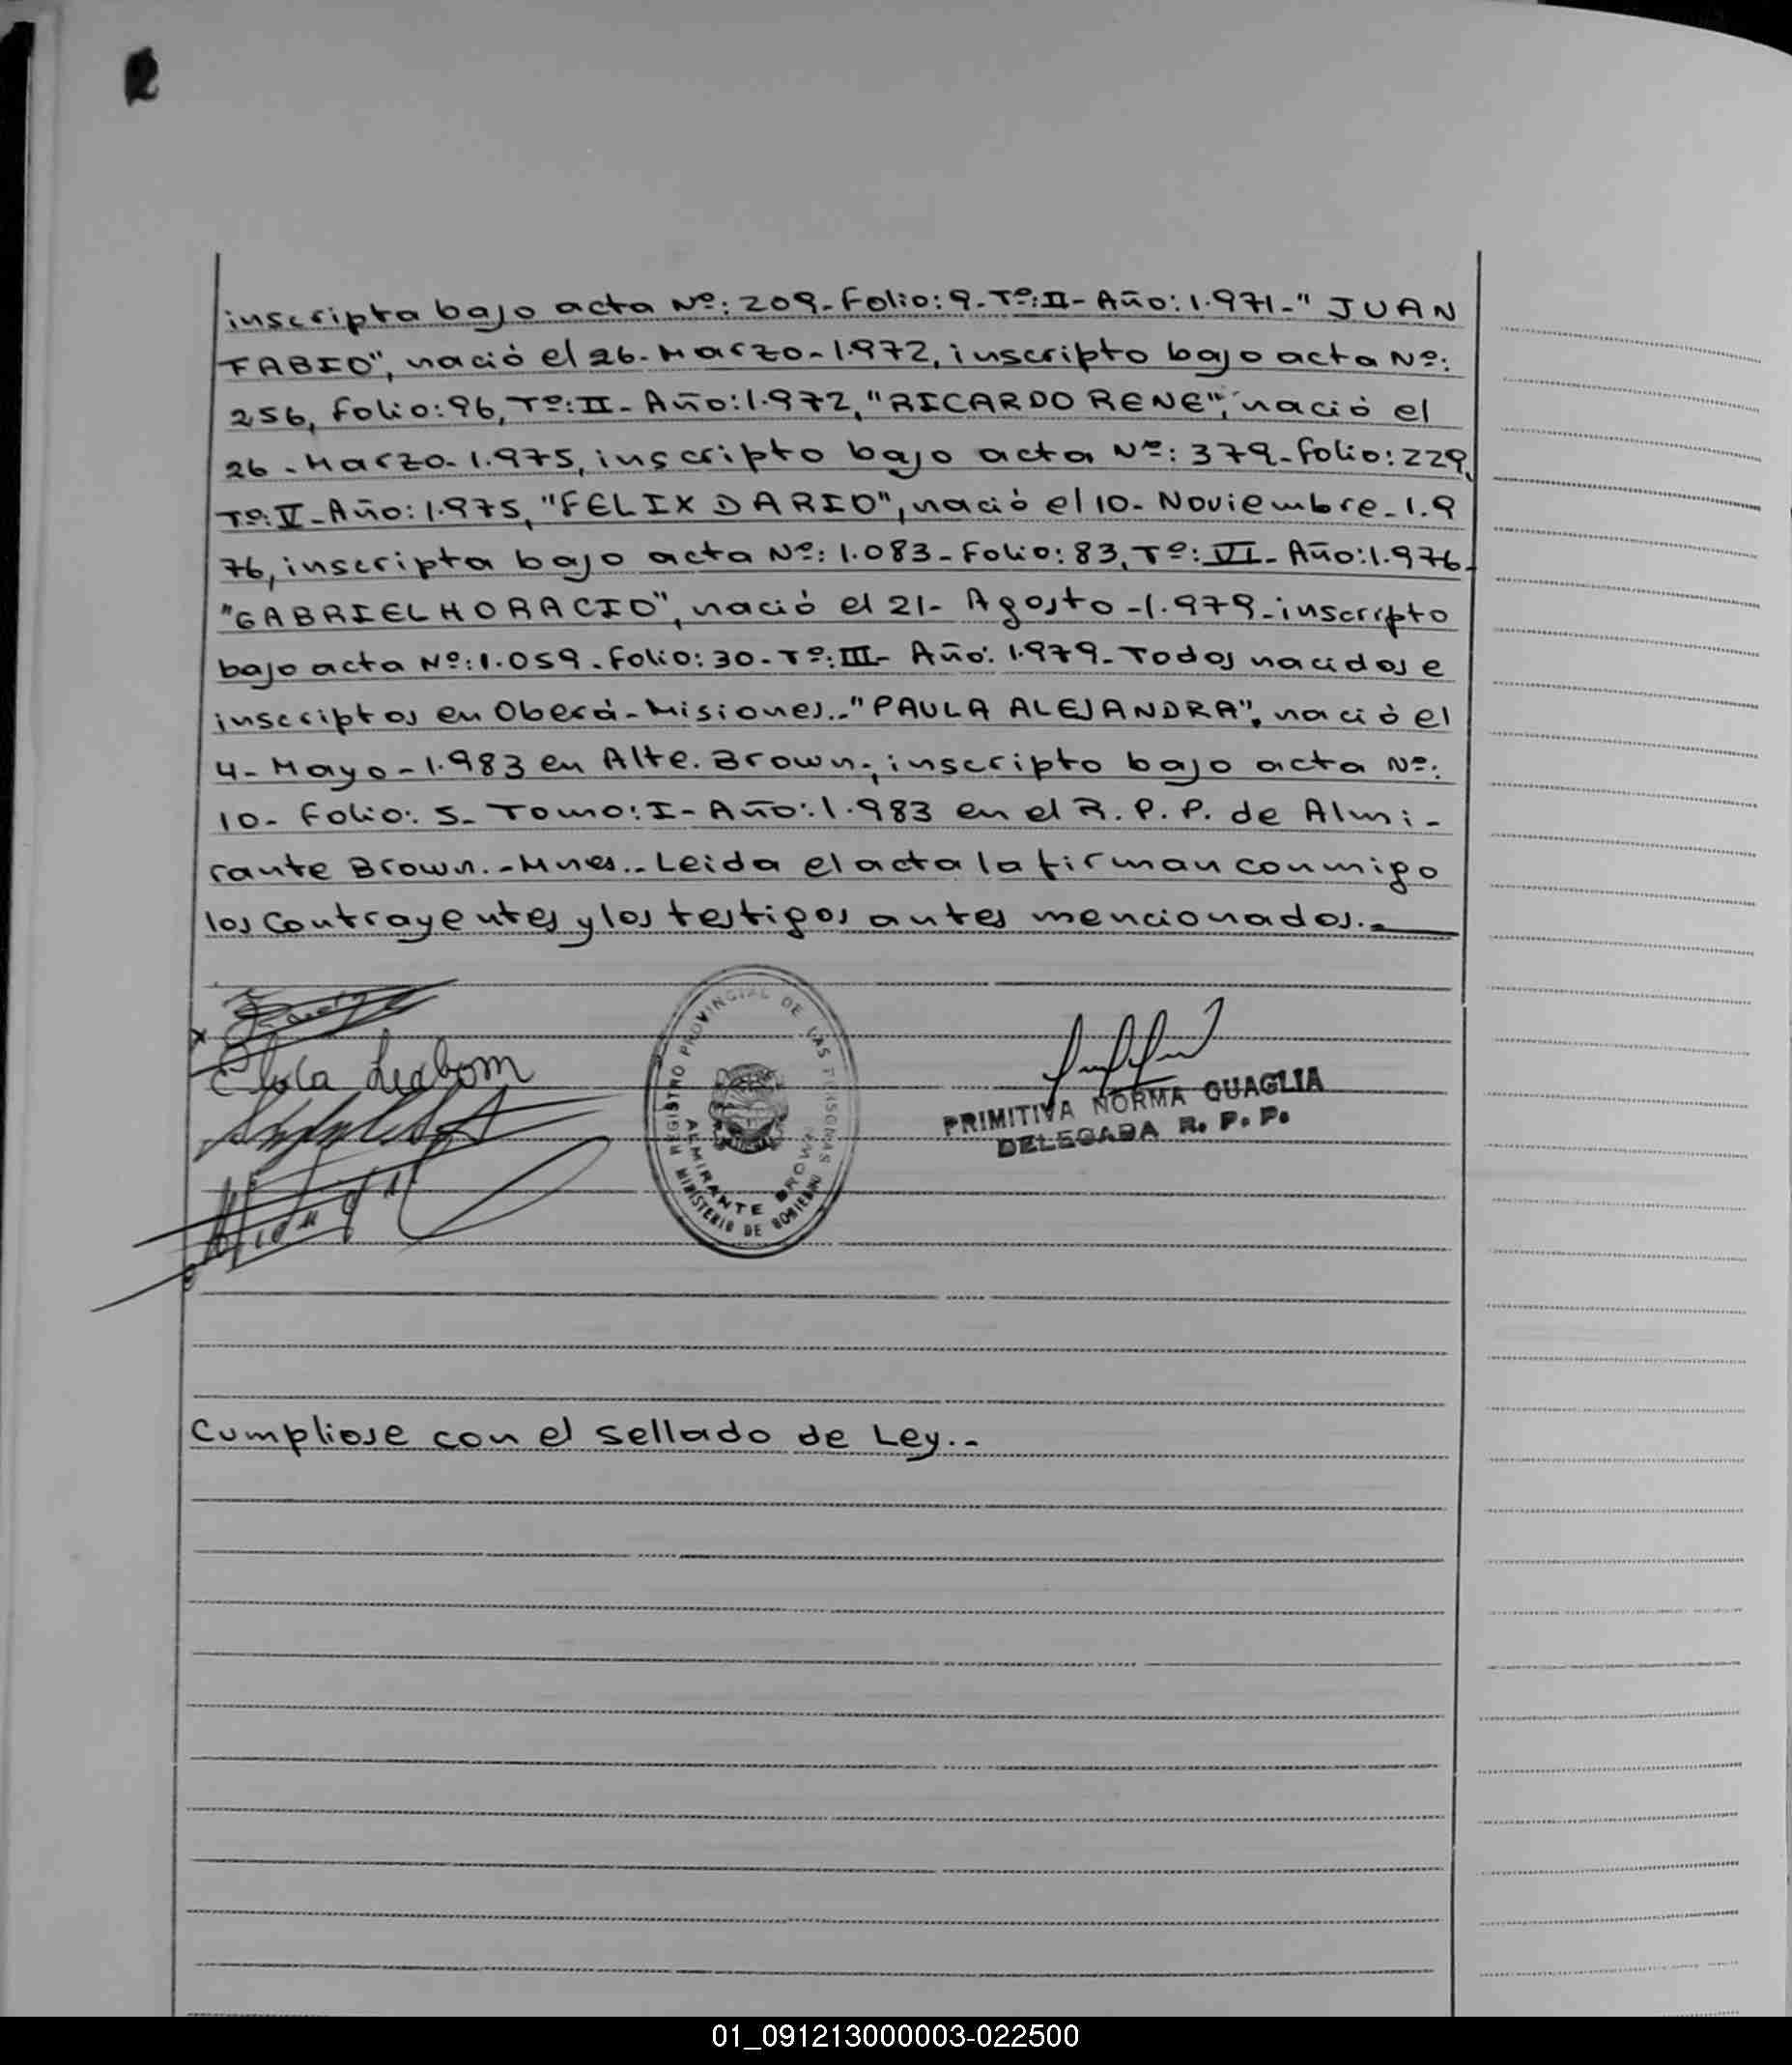 2
inscripta bajo acta Nº: 209- Folio: 9- Tº: II- Año: 1.971-" JUAN
FABIO", nació el 26- Marzo- 1.972, inscripto bajo acta Nº:
256, Folio: 96, Tº: II- Año: 1.972, "RICARDO RENE", nació el
26- Marzo- 1.975, inscripto bajo acta Nº: 379- Folio: 229,
Tº: V- Año: 1.975, "FELIX DARIO", nació el 10- Noviembre- 1.9
76, inscripta bajo acta Nº: 1.083- Folio: 83, Tº: VI- Año: 1.976-
"GABRIEL HORACIO", nació el 21- Agosto -1.979- inscripto
bajo acta Nº: 1.059- Folio: 30- Tº: III- Año: 1.979- Todos nacidos e
inscriptos en Oberá- Misiones.-"PAULA ALEJANDRA", nació el
4- Mayo- 1.983 en Alte. Brown-, inscripto bajo acta Nº:
10- Folio: 5- Tomo: I- Año: 1.983 en el R. P. P. de Almi-
rante Brown.-Mnes.- Leida el acta la firman conmigo
los Contrayentes y los testigos antes mencionados.-
REGISTRO PROVINCIAL DE LAS PERSONAS
ALMIRANTE BROWN
MINISTERIO DE GOBIERNO
PRIMITIVA NORMA QUAGLIA
DELEGADA R. P. P.
Cumpliose con el sellado de Ley.-
01_091213000003-022500